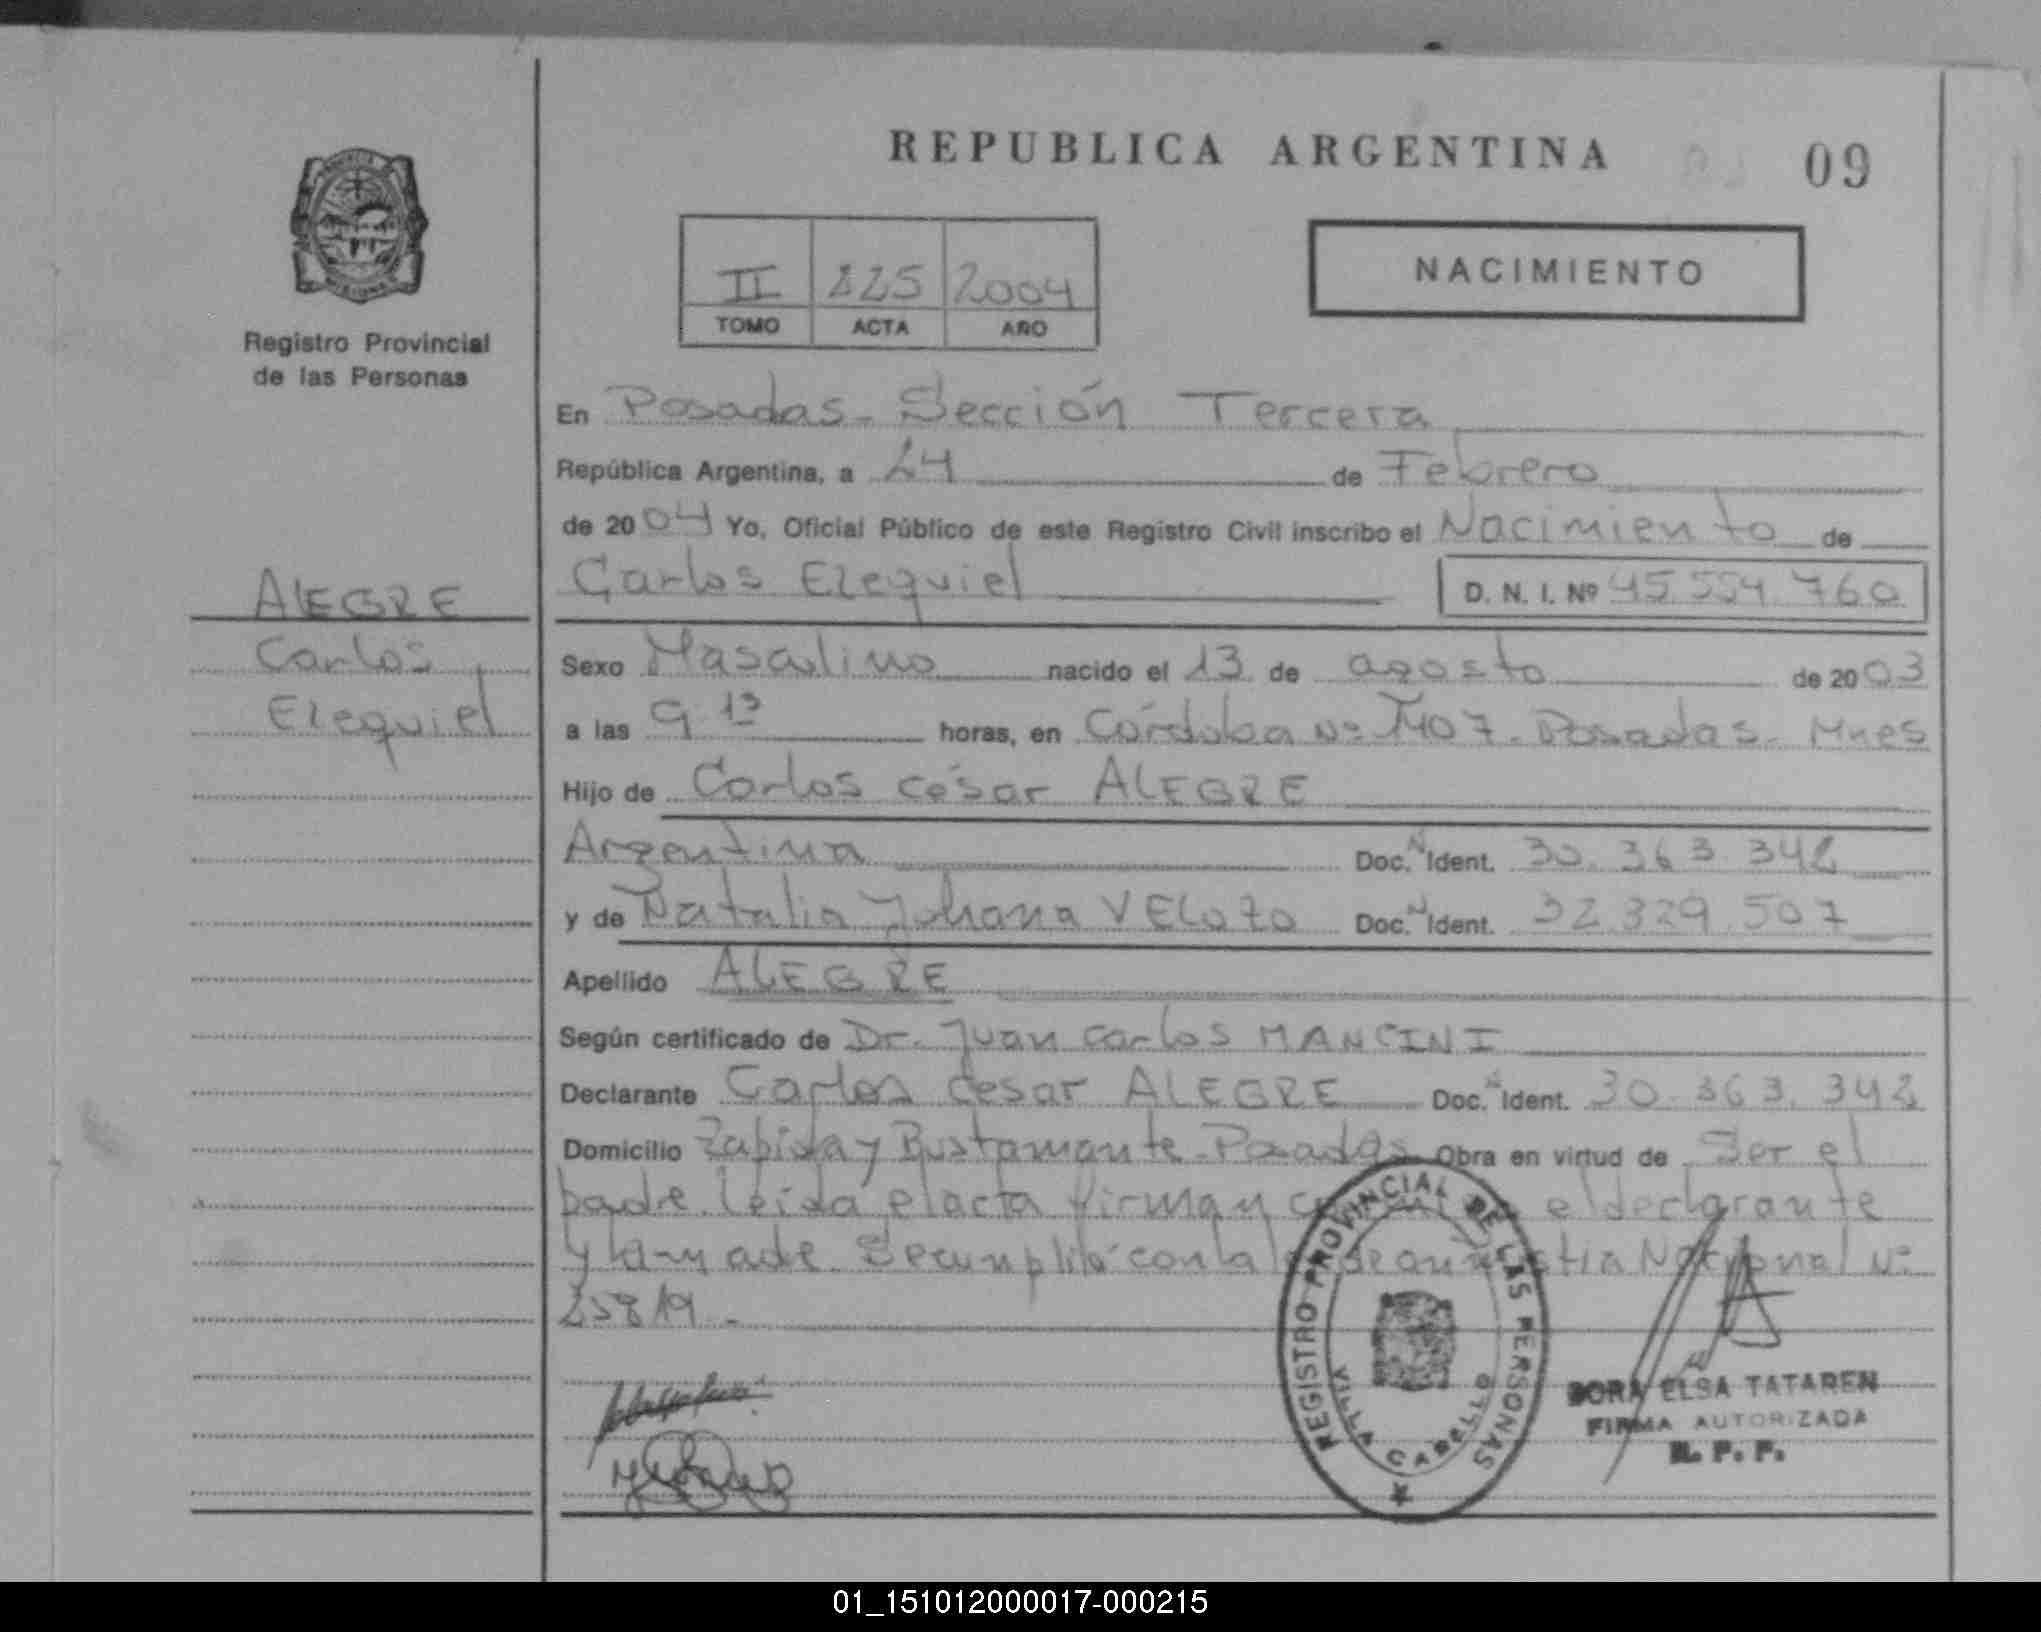 REPUBLICA ARGENTINA
09
II 225 2004
TOMO ACTA AÑO
NACIMIENTO
PROVINCIA
MISIONES
Registro Provincial
de las Personas
En Posadas - Sección Tercera
República Argentina, a 24 de Febrero
de 2004 Yo, Oficial Público de este Registro Civil inscribo el Nacimiento de
Carlos Ezequiel D. N. I. Nº 45.554.760
ALEGRE
Carlos
Ezequiel
Sexo Masculino nacido el 13 de agosto de 2003
a las 9 13 horas, en Córdoba Nº 1407 - Posadas - Mnes
Hijo de Carlos César ALEGRE
Argentina Doc. N Ident. 30.363.342
y de Natalia Johana VELOZO Doc. N Ident. 32.329.507
Apellido ALEGRE
Según certificado de Dr. Juan Carlos MANCINI
Declarante Carlos Cesar ALEGRE Doc. N Ident. 30.363.342
Domicilio y Bustamante - Posadas Obra en virtud de Ser el
padre. Leida el acta firman el declarante
y la madre. Se cumplió con la ley de amnistia Nacional Nº
25819 -
REGISTRO PROVINCIAL DE LAS PERSONAS
VILLA CABELLO
DORA ELSA TATAREN
FIRMA AUTORIZADA
R. P. P.
01_151012000017-000215